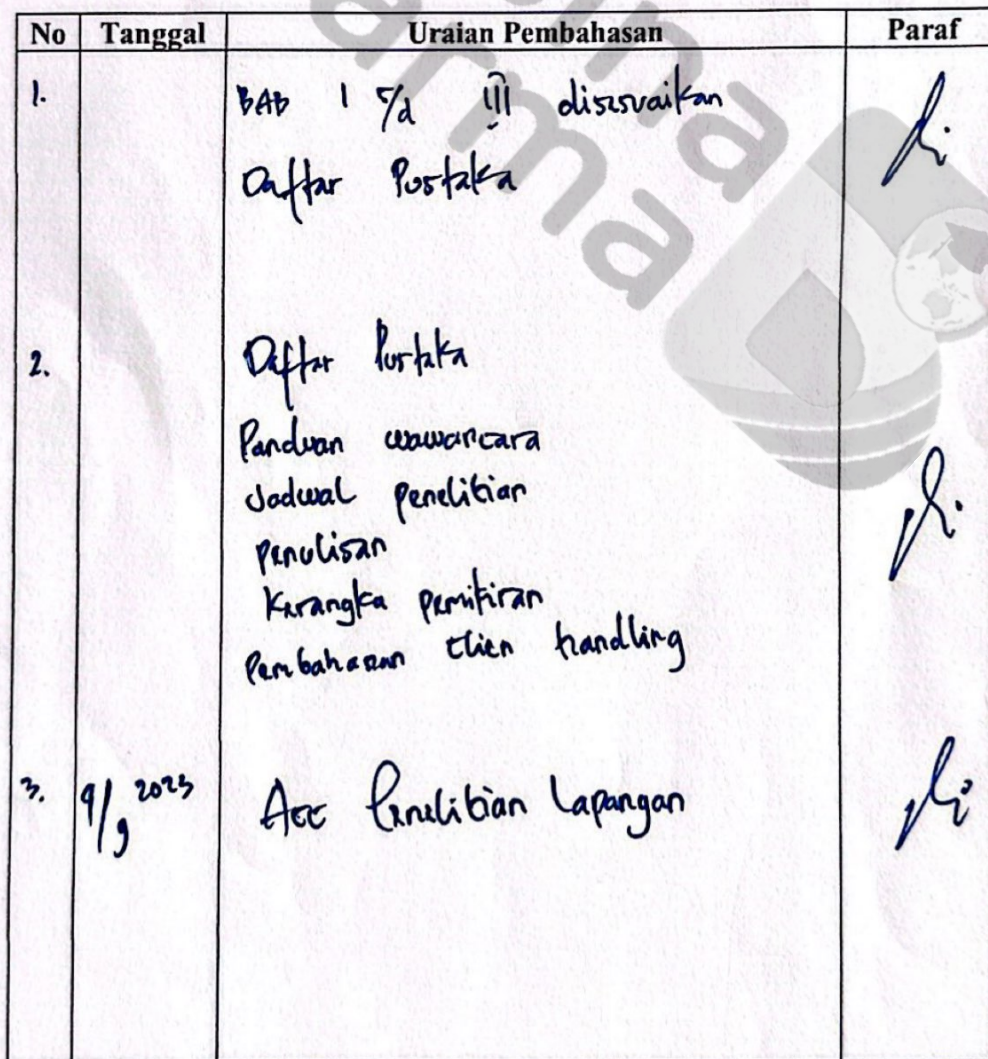 No Tanggal Uraian Pembahasan Paraf
1. BAB I s/d III disesuaikan
Daftar Pustaka
2. Daftar Pustaka
Panduan wawancara
Jadwal penelitian
penulisan
Kerangka pemikiran
Pembahasan Clien handling
3. 9/9 2023 Acc Penelitian Lapangan
ina
arma